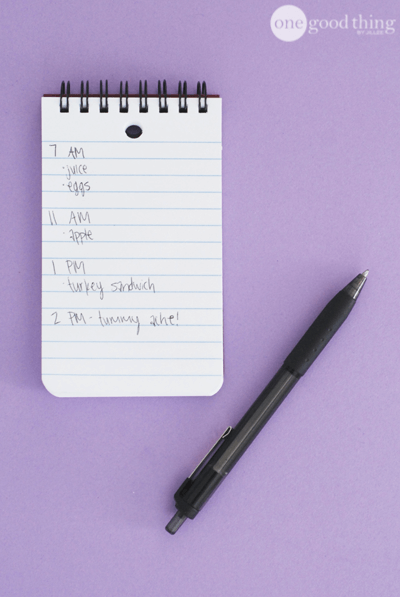 one good thing
BY JILLEE
7 AM
· juice
· eggs
11 AM
· apple
1 PM
· turkey sandwich
2 PM - tummy ache!